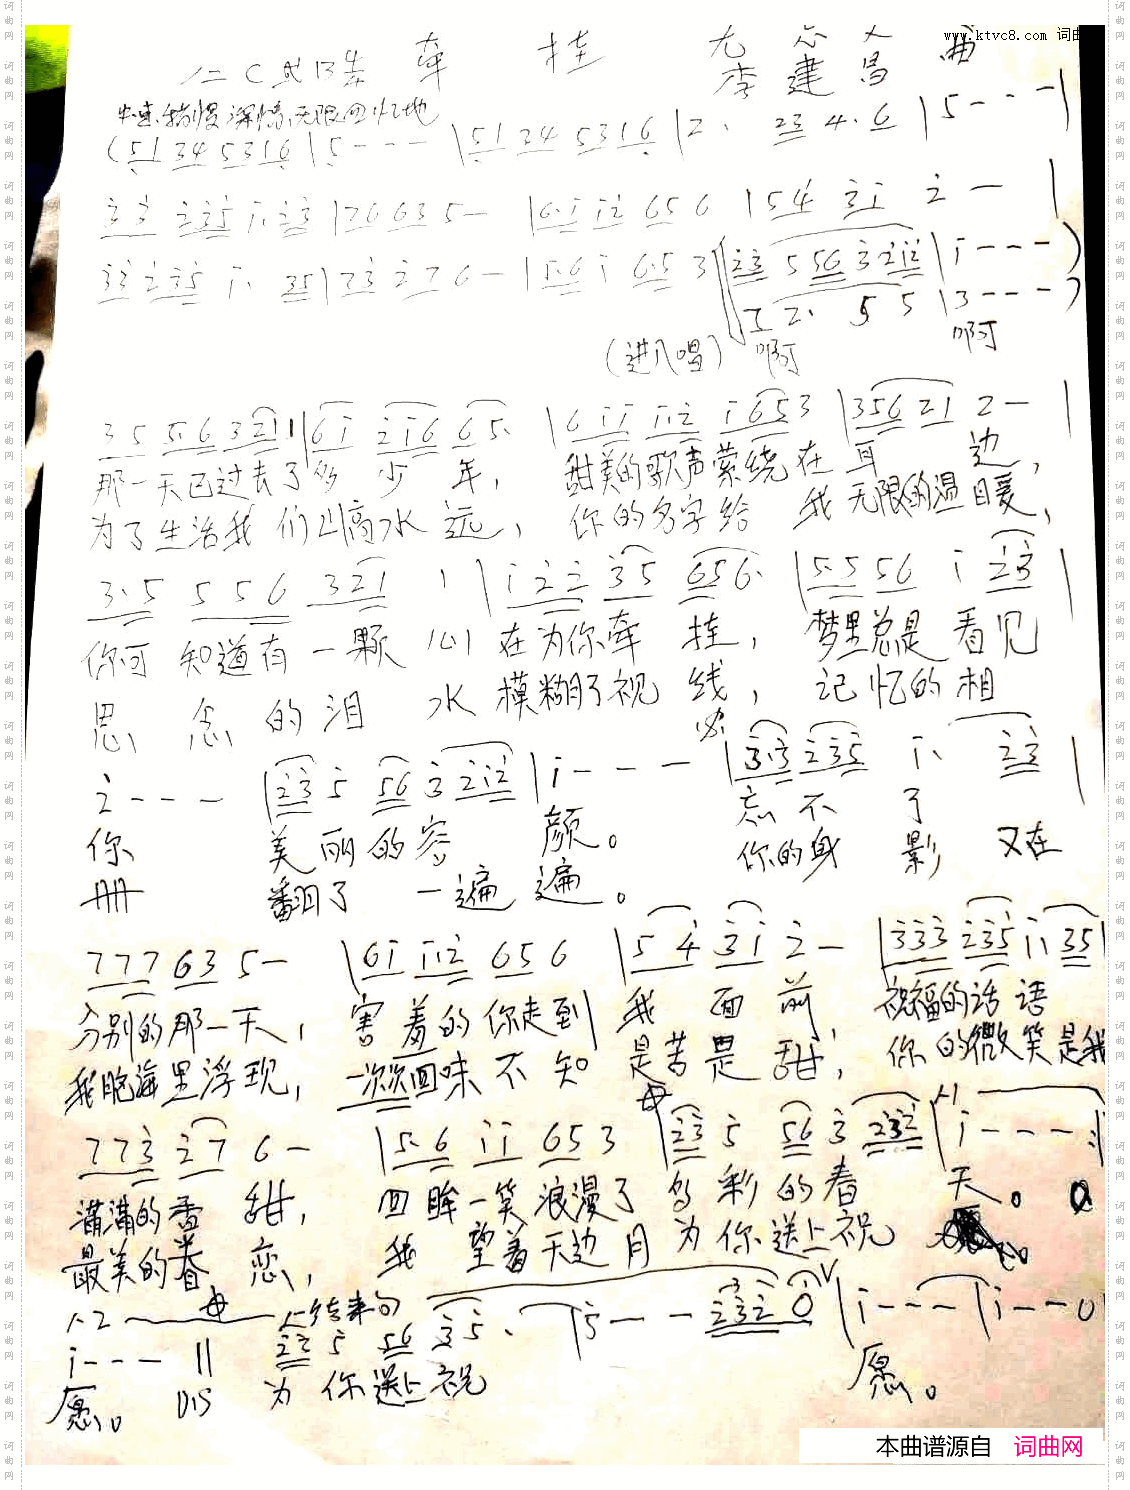 www.ktvc8.com 词曲
牵 挂
李建昌 曲
中速 稍慢 深情 无限回忆地
(51 34 5316 | 5 - - - | 51 34 5316 | 2· 23 4·6 | 5 - - - |
33 235 1·23 | 76 63 5 - | 6·1 12 65 6 | 54 31 2 - |
33 2 35 1· 35 | 73 2 7 6 - | 5·6 1 6·5 3 | 23 5 56 3 212 | 1 - - - )
1 2· 5 5 | 3 - - - )
(进入唱) 啊 啊
3 5 5·6 3 21 1 | 61 216 65· | 611 112 1653 | 356 21 2 - |
那一天已过去了多少年, 甜美的歌声萦绕在耳边,
为了生活我们山高水远, 你的名字给我无限的温暖,
3·5 5 5 6 321 1 | 1 2 2 35 656· | 5·5 56 1 23 |
你可知道有一颗心在为你牵挂, 梦里总是看见
思念的泪水模糊了视线, 记忆的相
2 - - - | 23 5 56 3 212 | 1 - - - | 3·3 235 1· 23 |
你 美丽的容颜。 忘不了
册 翻了一遍遍。 你的身影又在
777 63 5 - | 61 112 65 6 | 5 4 31 2 - | 333 235 11 35 |
分别的那一天, 害羞的你走到我面前, 祝福的话语
我脑海里浮现, 一次次回味不知是苦是甜, 你的微笑是我
773 27 6 - | 5·6 11 65 3 | 23 5 56 3 232 | 1 - - - :|
满满的香甜, 回眸一笑浪漫了多彩的春天。
最美的眷恋, 我望着天边月为你送上祝
2 结束句
1 - - - || 23 5 56 35· | 5 - - 232 0 | 1 - - - | 1 - - 0
愿。 DS 为你送上祝 愿。
本曲谱源自 词曲网